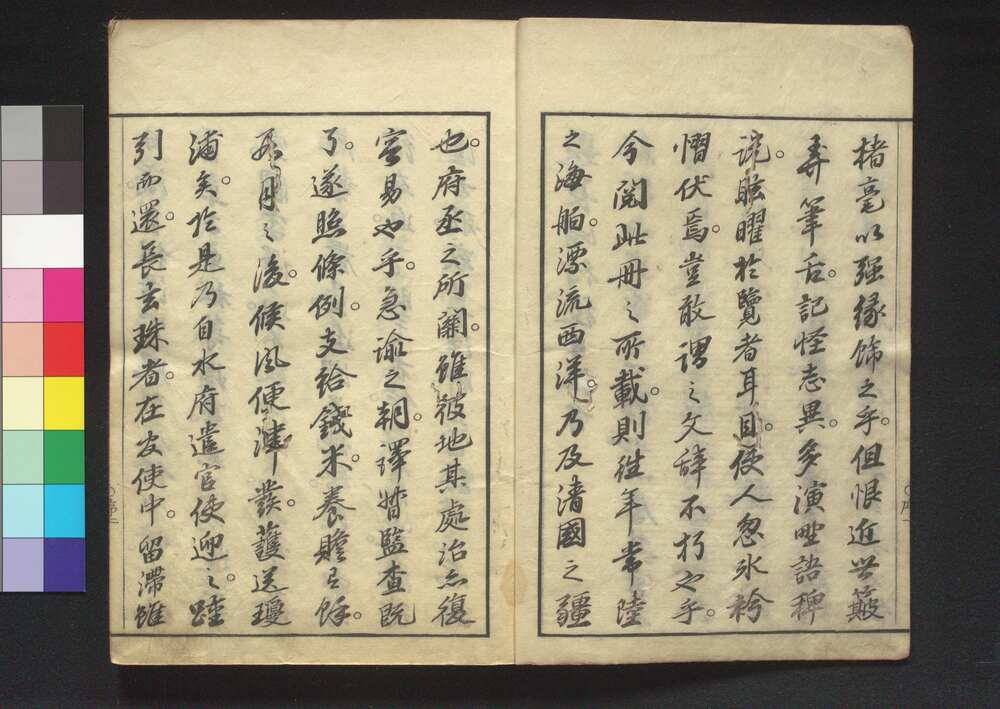 楮毫以强緣飾之乎。但恨近世簸
弄筆舌。記怪志異。多演野語稗
說。眩曜於覽者耳目。使人忽氷衿
慴伏焉。豈敢謂之文辭不朽也乎。
今閱此冊之所載。則往年常陸
之海舶。漂流西洋。乃及清國之疆
也。府丞之所關。雖彼地其處治亦復
容易也乎。急諭之。朝譯督監查既
了。遂照條例。支給錢米。養贍已餘
月之後。候風便津發。護送瓊
浦矣。於是乃自水府遣官使迎之。踵
引而還。長玄珠者。在友使中。留滯雖